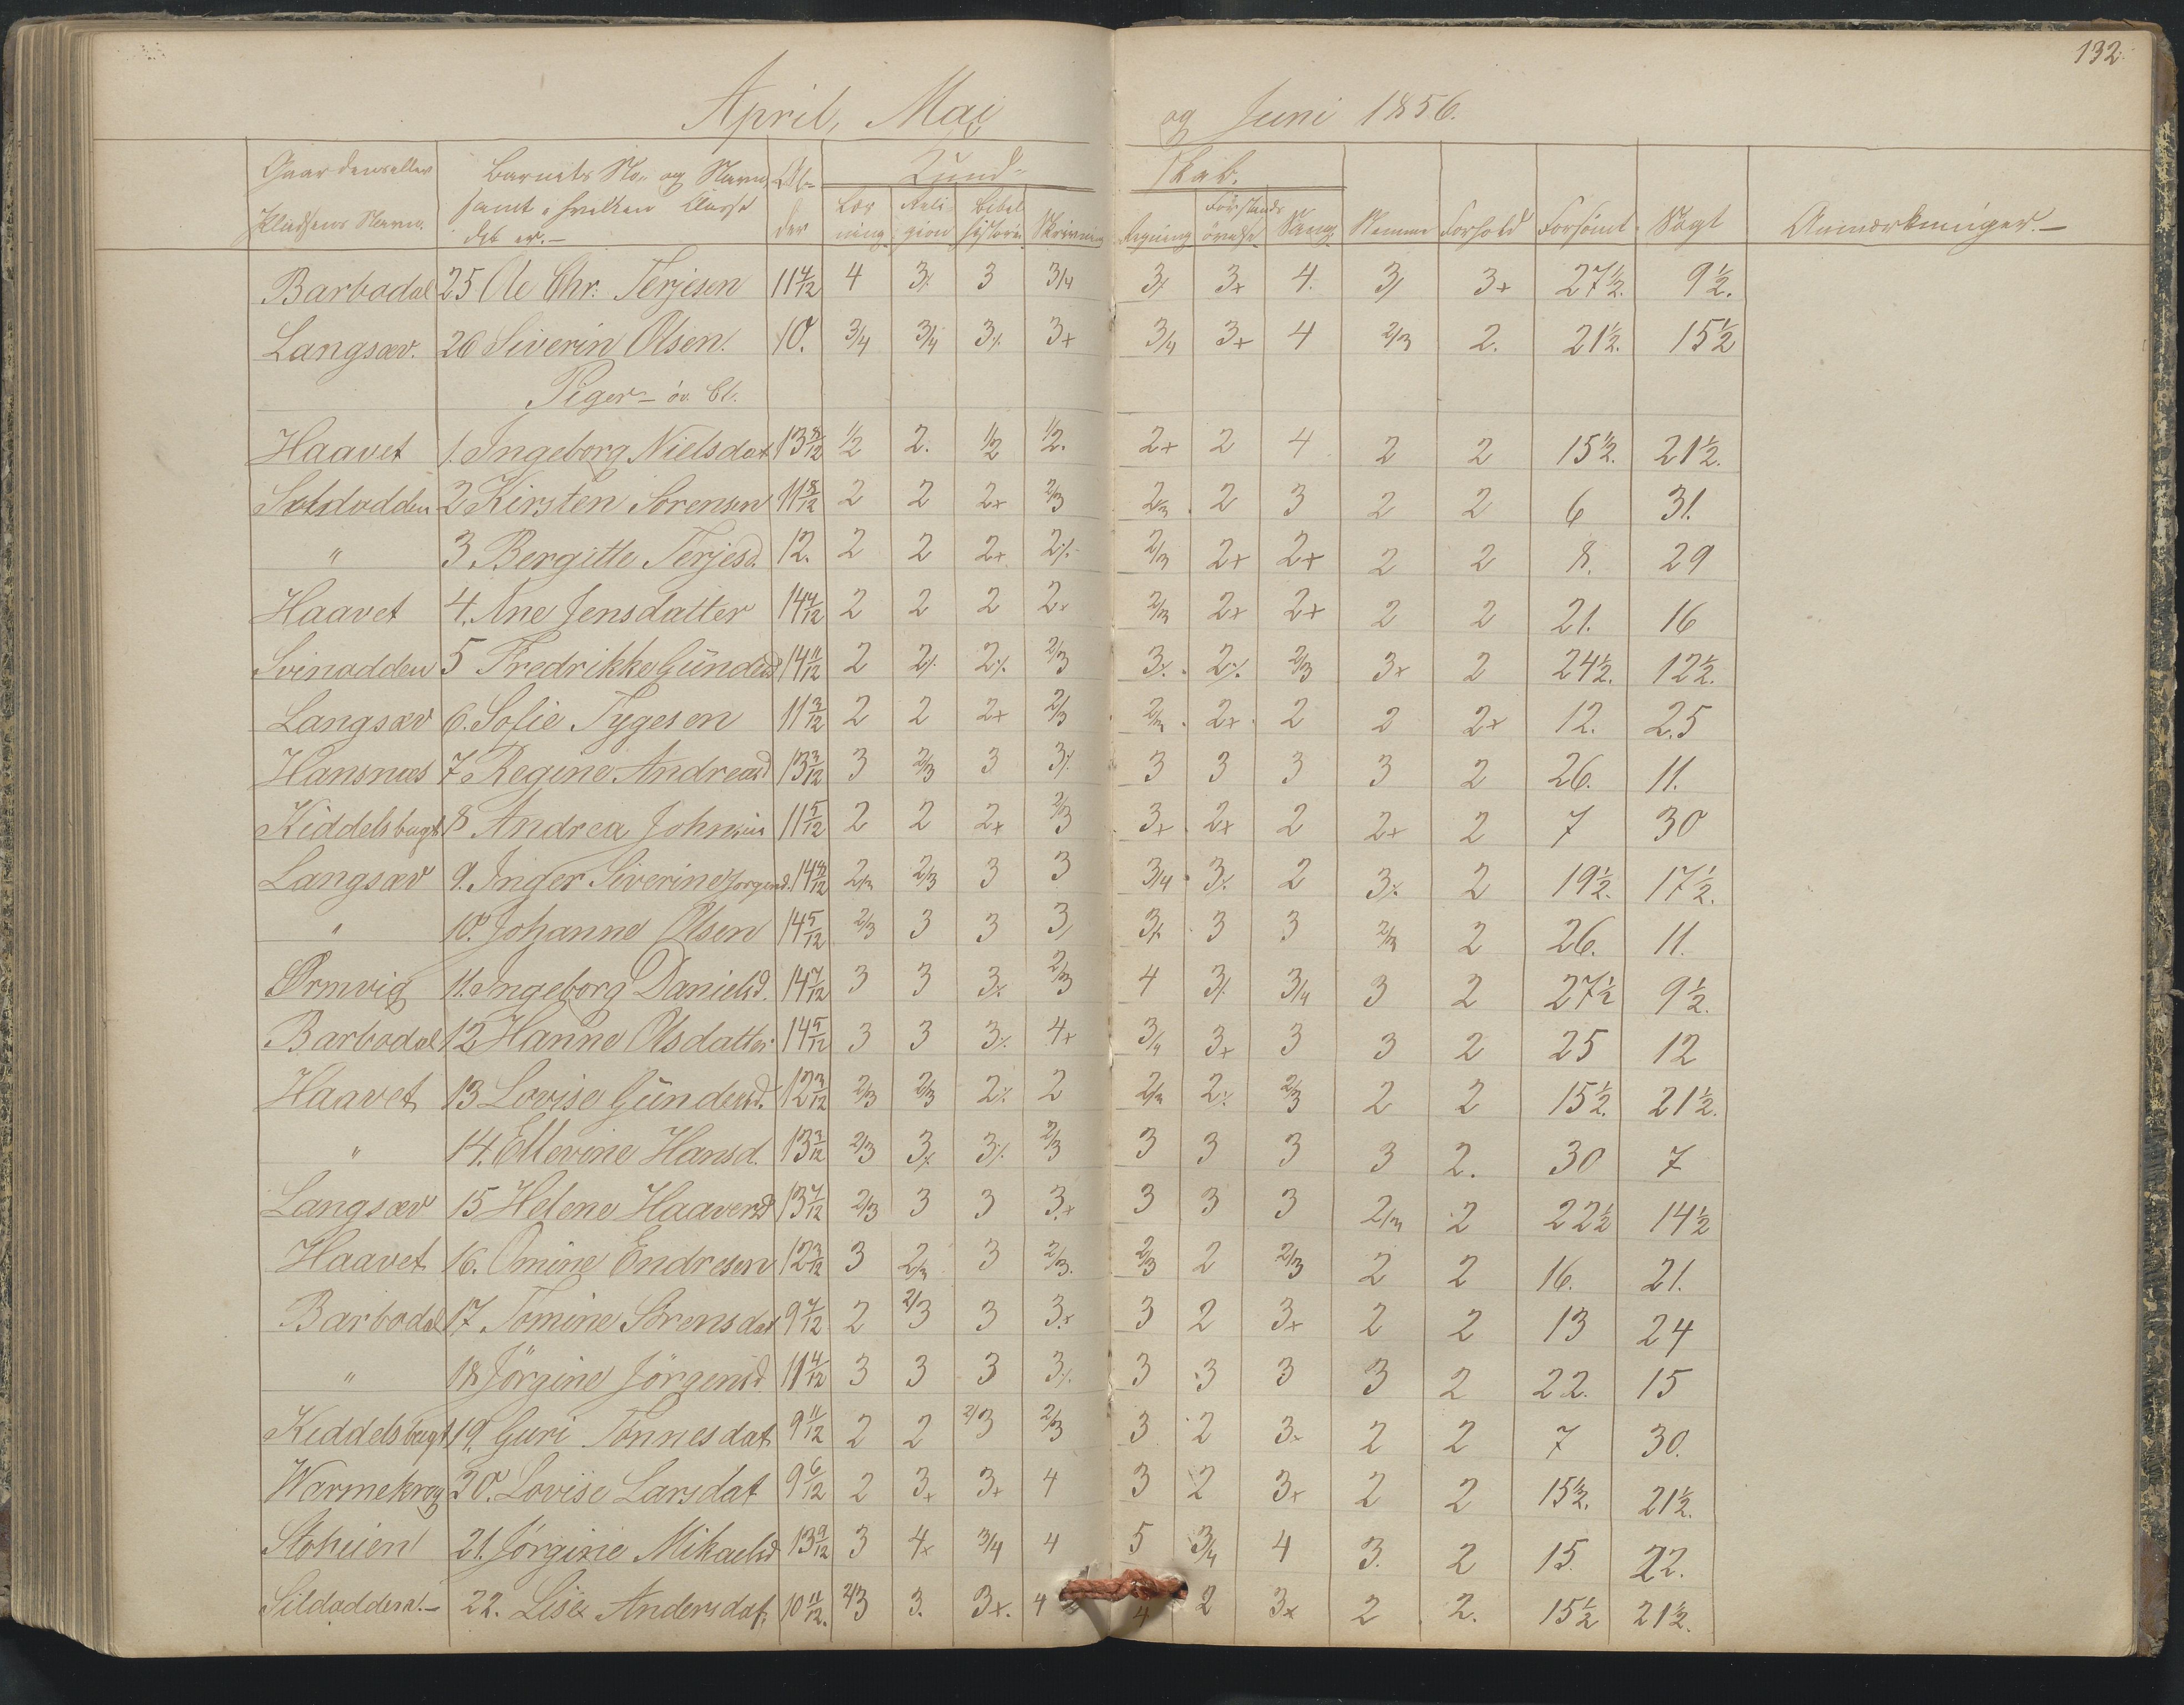 132.
April, Mai og Juni 1856.
Gaardens eller Pladsens Navn. Barnets No. og Navn, samt i hvilken Classe det er.— Alder Kundskab. Nemme Forhold Forsömt Sögt Anmærkninger.—
Læsning Religion Bibelhistorie Skrivning Regning Forstandsövelse Sang
Barbodal 25 Ole Chr. Terjesen 11 4 3 3/4 4. 3+ 27½. 9½.
Langsæv. 26 Siverin Olsen. 10. 3/4 3/4 3⁒ 3+ 3/4 3+ 4 2/3 2. 21½. 15½
Piger— öv. Cl.
Haavet 1. Ingeborg Nielsdat 13 8/12 1/2 2. 1/2 1/2. 2+ 2 4 2 2 15½. 21½.
2 Kirsten Sörensen 11 8/12 2 2 2+ 2/3 2/3 2 3 2 2 6 31.
" 3. Bergitte Terjesd. 12. 2 2 2+ 2⁒ 2/3 2+ 2+ 2 2 8. 29
Haavet 4. Ane Jensdatter 14 2 2 2 2+ 2/3 2+ 2+ 2 2 21. 16
Svinodden 5 Fredrikke Gündersd 14 11/12 2 2⁒ 2⁒ 2/3 3⁒ 2⁒ 2/3 3+ 2 24½. 12½.
Langsæv 6. Sofie Tygesen 11 3/12 2 2 2+ 2/3 2/3 2+ 2 2 2+ 12. 25
Hansnæs 7 Regine Andreasd 13 3/12 3 2/3 3 3⁒ 3 3 3 3 2 26. 11.
Kiddelsbugt 8 Andrea Johnsen 11 5/12 2 2 2+ 2/3 3+ 2+ 2 2+ 2 7 30
Langsæv 9. Inger Siverine Jörgensd. 14 8/12 2/3 2/3 3 3 3/4 3⁒ 2 3⁒ 2 19½. 17½.
" 10. Johanne Olsen 14 5/12 2/3 3 3 3 3+ 3 3 2/3 2 26. 11.
Ormvig 11. Ingeborg Danielsd. 14 7/12 3 3 3⁒ 2/3 4 3⁒ 3/4 3 2 27½ 9½.
Barbodal 12 Hanne Olsdatter 14 5/12 3 3 3⁒ 4+ 3/4 3+ 3 3 2 25 12
Haavet 13 Lovise Gündersd. 12 3/12 2/3 2/3 2⁒ 2 2/3 2⁒ 2/3 2 2 15½. 21½.
" 14. Ellevine Hansd. 13 3/12 2/3 3+ 3⁒ 2/3 3 3 3 3 2. 30 7
Langsæv 15 Helene Haaversd 13 7/12 2/3 3 3 3+ 3 3 3 2/3 2 22½ 14½
Haavet 16. Omine Endresen 12 3/12 3 2/3 3 2/3. 2/3 2 2/3 2 2 16. 21.
Barbodal 17 Tomine Sörensdat 9 7/12 2 2/3 3 3+ 3 2 3+ 2 2 13 24
" 18 Jörgine Jörgensd. 11 4/12 3 3 3 3⁒ 3 3 3 3 2 22. 15
Kiddelsbugt 19. Guri Tönnesdat 9 11/12 2 2 2/3 2/3 3 2 3+ 2 2 7 30.
Warmekrog 20. Lovise Larsdat 9 6/12 2 3+ 3+ 4 3 2 3+ 2 2 15½. 21½.
Stöheien 21. Jörgine Mikaelsd 13 9/12 3 4+ 3/4 4 5 3/4 4 3. 2 15. 22.
Sildodden.— 22. Lise Andersdat. 10 11/12. 2/3 3. 3+. 4 4 2 3+ 2 2. 15½ 21½.